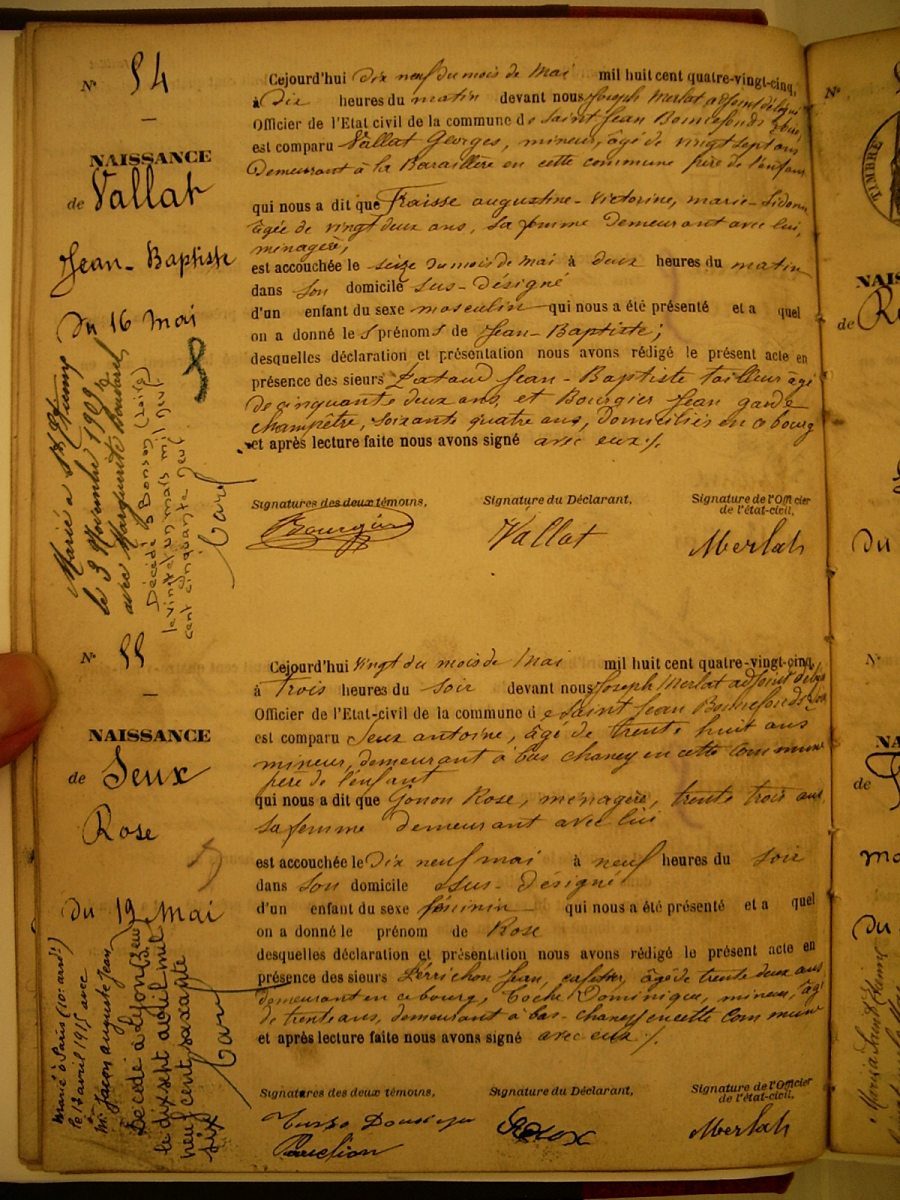 N° 54
NAISSANCE
de Vallat
Jean-Baptiste
Du 16 Mai
Marié à St Etienne
le 3 9bre 1909
avec Marguerite
Décédé à Bonson (Loire)
le vingt un mars mil neuf
cent cinquante neuf
Cejourd'hui dix neuf du mois de Mai mil huit cent quatre-vingt-cinq,
à Dix heures du matin devant nous Joseph Merlat adjoint délégué
Officier de l'Etat civil de la commune de Saint Jean Bonnefonds Loire,
est comparu Vallat Georges, mineur, âgé de vingt sept ans
Demeurant à la Baraillère en cette commune père de l'enfant
qui nous a dit que Fraisse augustine-Victorine, marie-Sidonie
âgée de vingt deux ans, sa femme demeurant avec lui,
ménagère,
est accouchée le seize du mois de Mai à deux heures du matin
dans son domicile sus-désigné
d'un enfant du sexe masculin qui nous a été présenté et a quel
on a donné le s prénoms de Jean-Baptiste;
desquelles déclaration et présentation nous avons rédigé le présent acte en
présence des sieurs Pataud Jean-Baptiste tailleur âgé
de cinquante deux ans, et Bourgier Jean garde
champêtre, soixante quatre ans, domiciliés en ce bourg
et après lecture faite nous avons signé avec eux /.
Signatures des deux témoins,
Signature du Déclarant,
Signature de l'Officier
de l'état-civil,
Vallat
Merlat
N° 55
NAISSANCE
de Seux
Rose
Du 19 Mai
Marié à Paris (10e arrdt)
le 17 avril 1915 avec
Mr Jacon auguste Jean
Décédé à Lyon
le dix sept avril mil
neuf cent soixante
six
Cejourd'hui vingt du mois de Mai mil huit cent quatre-vingt-cinq,
à Trois heures du soir devant nous Joseph Merlat adjoint délégué
Officier de l'Etat-civil de la commune de Saint Jean Bonnefonds Loire
est comparu Seux antoine, âgé de trente huit ans
mineur, demeurant à bas chaney en cette commune
père de l'enfant
qui nous a dit que Gonon Rose, ménagère, trente trois ans
sa femme demeurant avec lui
est accouchée le Dix neuf mai à neuf heures du soir
dans son domicile sus-désigné
d'un enfant du sexe féminin qui nous a été présenté et a quel
on a donné le prénom de Rose
desquelles déclaration et présentation nous avons rédigé le présent acte en
présence des sieurs Perrichon Jean, cafetier, âgé de trente deux ans
demeurant en ce bourg, Dominique, mineur, âgé
de trente ans, demeurant à bas-chaney en cette commune
et après lecture faite nous avons signé avec eux /.
Signatures des deux témoins,
Signature du Déclarant,
Signature de l'Officier
de l'état-civil,
Seux
Merlat
N°
TIMBRE
de
du
N°
de
du